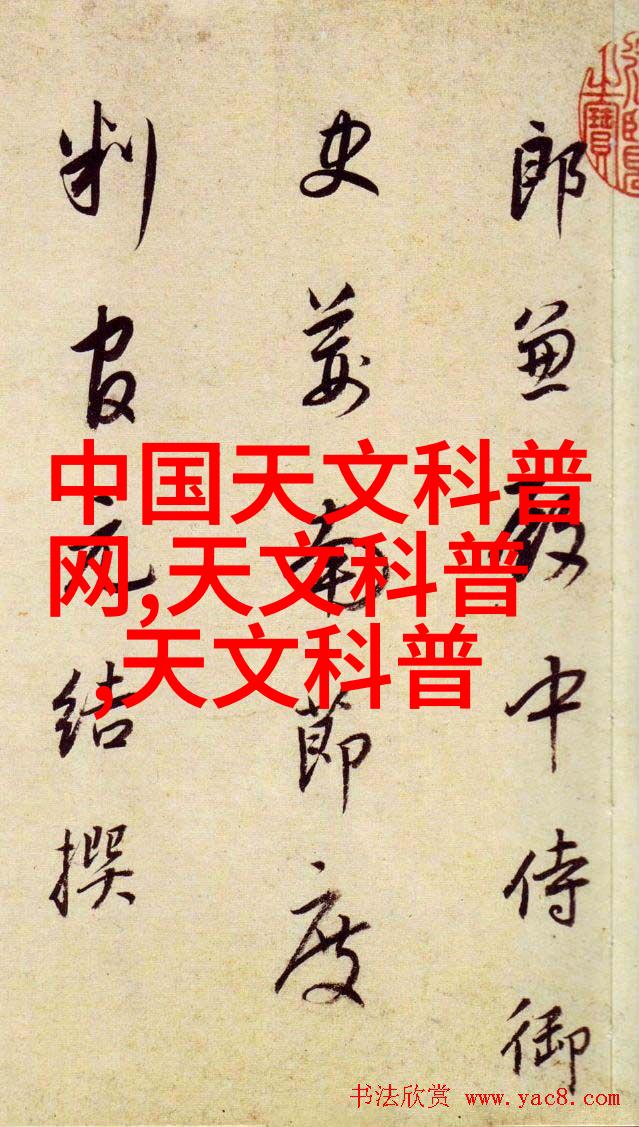 郎兼殿中侍御
史荊南節度
判官元结撰
中国天文科普
网,天文科普
,天文科普
书法欣赏 www.yac8.com